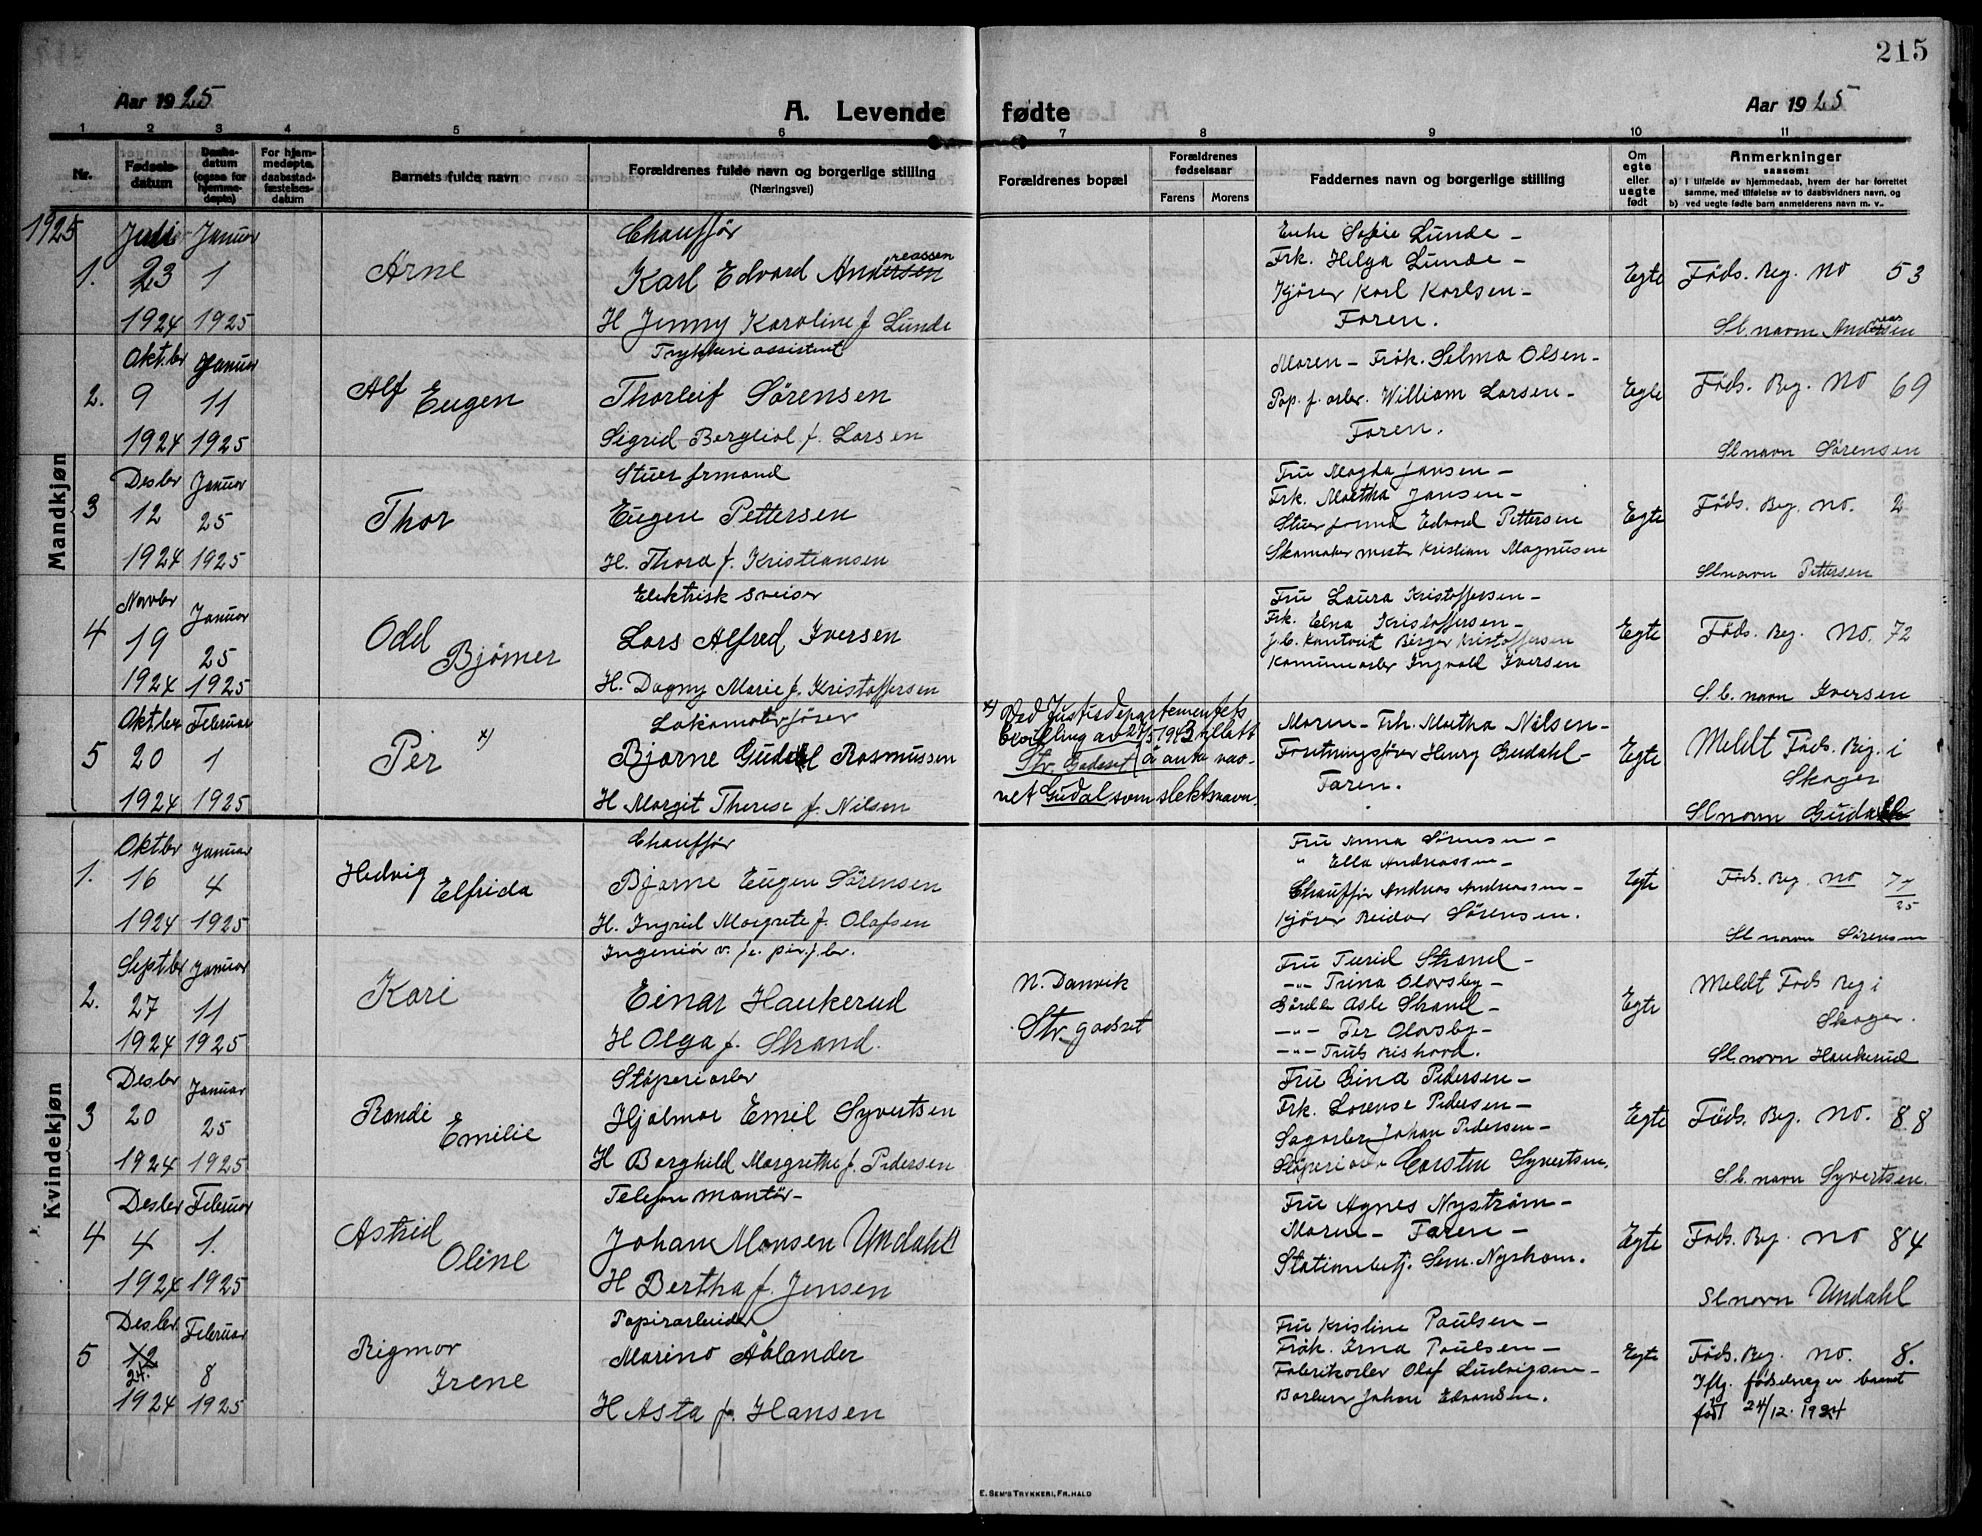 215
Aar 1925
A. Levende fødte
Aar 1925
1 2 3 4 5 6 7 8 9 10 11
Nr.
Fødsels-datum
Daabs-datum (ogsaa for hjemme-døpte)
For hjem-medøpte daabsstad-fæstelses-datum
Barnets fulde navn
Forældrenes fulde navn og borgerlige stilling
(Næringsvei)
Forældrenes bopæl
Forældrenes fødselsaar
Farens Morens
Faddernes navn og borgerlige stilling
Om egte eller uegte født
Anmerkninger
saasom:
a) I tilfælde av hjemmedaab, hvem der har forrettet
samme, med tilføielse av to daabsvidners navn, og
b) ved uegte fødte barn anmelderens navn m. v.
Mandkjøn
1925
1. Juli 23 1924
Januar 1 1925
Arne
Chauffør
Karl Edvard Andersen reassen
H Jenny Karoline f Lunde
Enke Sofie Lunde -
Frk. Helga Lunde -
Kjører Karl Karlsen -
Faren.
Egte
Føds. Reg. No 53
Sl. navn Andersen reas
2. Oktbr 9 1924
Januar 11 1925
Alf Eugen
Trykkeri assistent
Thorleif Sørensen
Sigrid Bergliot f. Larsen
Moren - Frøk. Selma Olsen -
Pap. f. arbr. William Larsen -
Faren.
Egte
Føds. Reg. No 69
Sl navn Sørensen
3 Desbr 12 1924
Januar 25 1925
Thor
Stuerformand
Eugen Pettersen
H. Thora f. Kristiansen
Fru Magda Jansen -
Frk. Martha Jansen -
Stuerformd Edvard Pettersen
Skomakermester Kristian Magnusen
Egte
Føds. Reg. no. 2
Sl navn Pettersen
4 Novbr 19 1924
Januar 25 1925
Odd Bjørner
Elektrisk sveiser
Lars Alfred Iversen
H. Dagny Marie f. Kristoffersen
Fru Laura Kristoffersen -
Frk. Elna Kristoffersen -
J.b. Kontorist Birger Kristoffersen
Komunearbr Ingvall Iversen
Egte
Føds. Reg. No. 72
S.b. navn Iversen
5 Oktbr 20 1924
Februar 1 1925
Per x)
Lokomotivfører
Bjarne Gudal Rasmussen
H Margit Therese f. Nilsen
x) Ved Justisdepartementets
bevilling av 27/5 1943 tillatt
Str. Godset å anta nav-
net Gudal som slektsnavn.
Moren - Frk. Martha Nilsen -
Forretningsfører Henry Gudahl -
Faren.
Egte
Meldt Føds. Reg. i
Skoger
Sl navn Gudahl
Kvindekjøn
1. Oktbr 16 1924
Januar 4 1925
Hedvig Elfrida
Chauffør
Bjarne Eugen Sørensen
H. Ingrid Margrete f. Olafsen
Fru Anna Sørensen -
" Ella Andreassen -
Chauffør Andreas Andreassen -
Kjører Reidar Sørensen.
Egte
Føds. Reg. no 77/25
Sl navn Sørensen
2. Septbr 27 1924
Januar 11 1925
Kari
Einar Haukerud
H Olga f. Strand.
N. Danvik
Str. godset
Fru Turid Strand -
-"- Trina Olavsby -
Gårdbr Asle Strand -
-"- Per Olavsby -
-"- Truls Rishovd.
Egte
Meldt Føds Reg i
Skoger.
Sl navn Haukerud
3 Desbr 20 1924
Januar 25 1925
Randi Emilie
Støperiarbr
Hjalmar Emil Syvertsen
H Borghild Margrethe f. Pedersen
Fru Gina Pedersen -
Frk. Lorense Pedersen -
Sagarbr Johan Pedersen -
Støperiarbr Carsten Syvertsen.
Egte
Føds. Reg. No. 88
S.b. navn Syvertsen
4 Desbr 4 1924
Februar 1. 1925
Astrid Oline
Telefon montør -
Johan Monsen Undahl
H Bertha f. Jensen
Fru Agnes Nystrøm -
Moren - Faren -
Stationbetj. Sem. Nystrøm.
Egte
Føds. Reg. no 84
Sl navn Undahl
5 Desbr 12 24. 1924
Februar 8 1925
Rigmor Irene
Papirarbeider
Marino Åblander
H Asta f. Hansen
Fru Kristine Paulsen -
Frøk. Erna Paulsen -
Fabrikarbr Olaf Ludvigsen -
Johan Edvardsen.
Egte
Føds. Reg. no. 8.
Iflg. fødselsreg er barnet
født 24/12. 1924
E. SEM'S TRYKKERI, FR.HALD